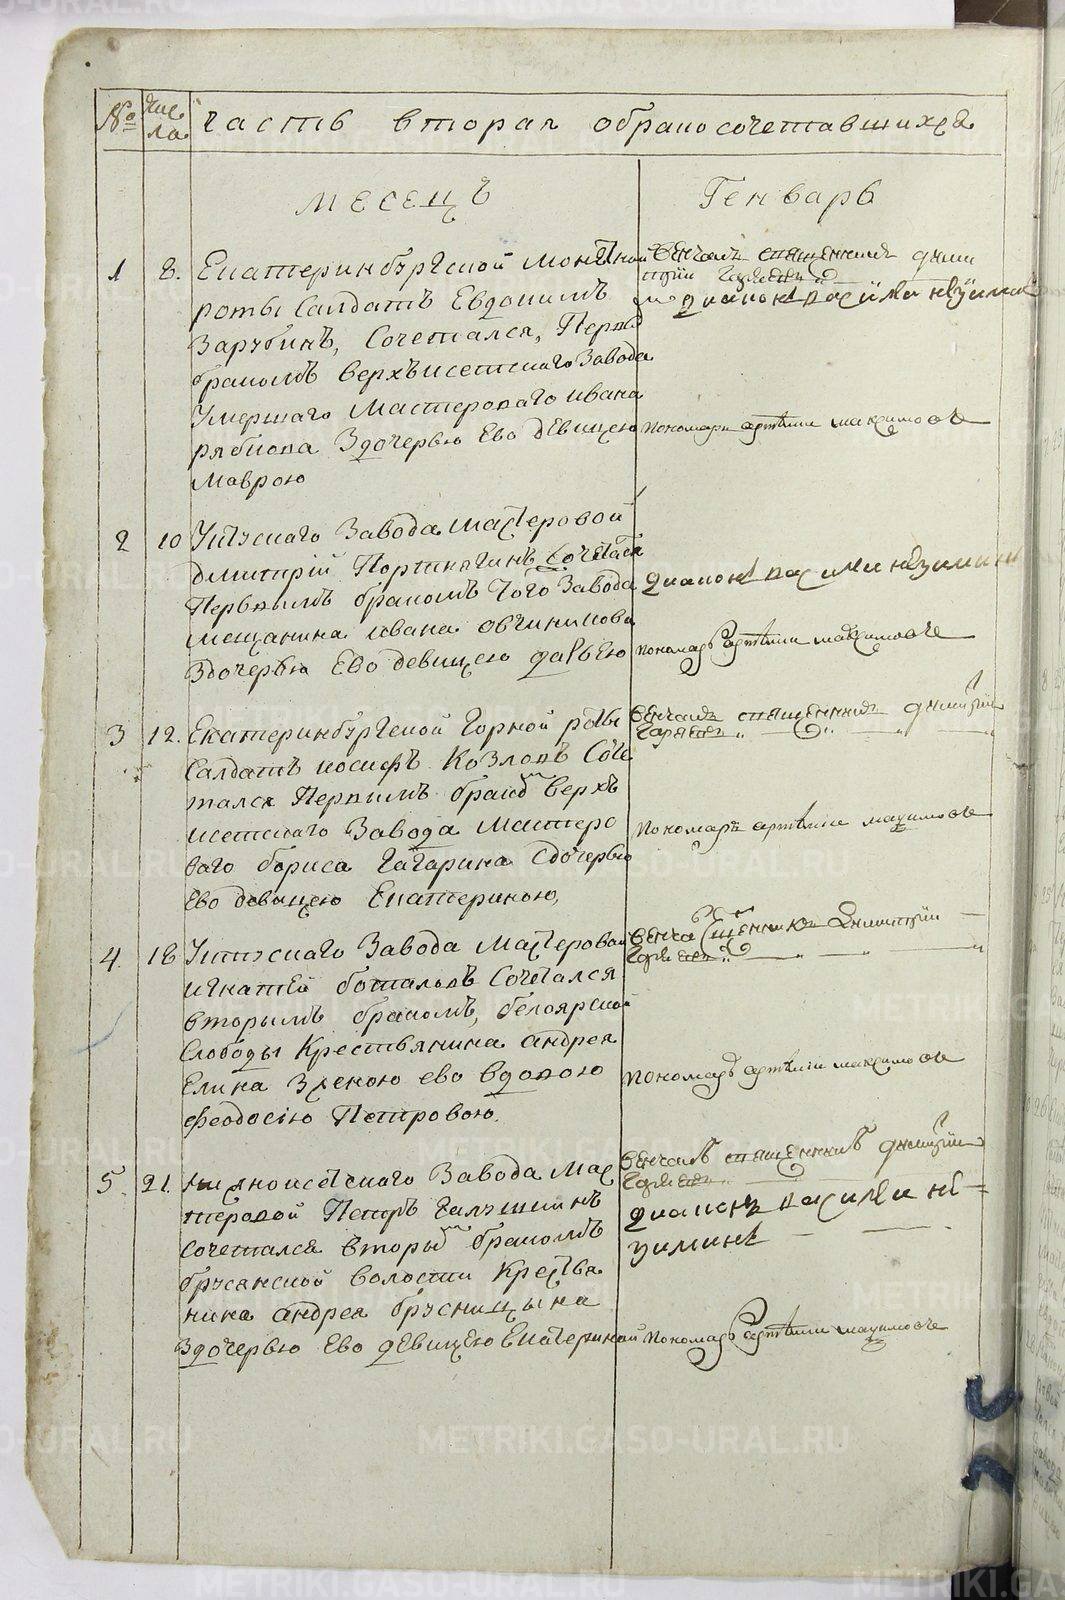 № Чис часть вторая обракосочетавшихся
ла
месецъ Генварь
1 8. Екатеринбургской монетной
роты Салдатъ Евдокимъ
Зарубинъ, Сочетался, Первы
бракомъ верхъисетскаго Завода
Умершаго Мастероваго ивана
рябкова Здочерью Ево девицею
маврою
венчалъ священникъ дими
трий
диаконъ василий
пономарь артемий максимовъ
2 10 Уктускаго Завода мастеровой
дмитрий Сочетался
Первымъ бракомъ Того Завода
мещанина ивана овчиникова
Здочерью Ево девицею дарьею
диаконъ василий
пономарь артемий максимовъ
3 12. Екатеринбургской Горной роты
Салдатъ иосифъ Козловъ Соче
тался Первымъ бракомъ верхъ
исетскаго Завода Мастеро
ваго бориса Гагарина Сдочерью
Ево девицею Екатериною,
венчалъ священникъ димитрий
пономарь артемий максимовъ
4. 18 Уктускаго Завода Мастеровой
игнатей Сочетался
вторымъ бракомъ, белоярской
Слободы Крестьянина андрея
Елина Зженою ево вдовою
феодосiею Петровою.
димитрий
пономарь артемий максимовъ
5. 21. нижноисетскаго Завода мас
теровой Петръ
Сочетался вторы бракомъ
брусянской волости Крестья
нина андрея брусницына
Здочерью Ево девицею Екатериной
венчалъ священникъ димитрий
диаконъ василий
пономарь артемий максимовъ
METRIKI.GASO-URAL.RU